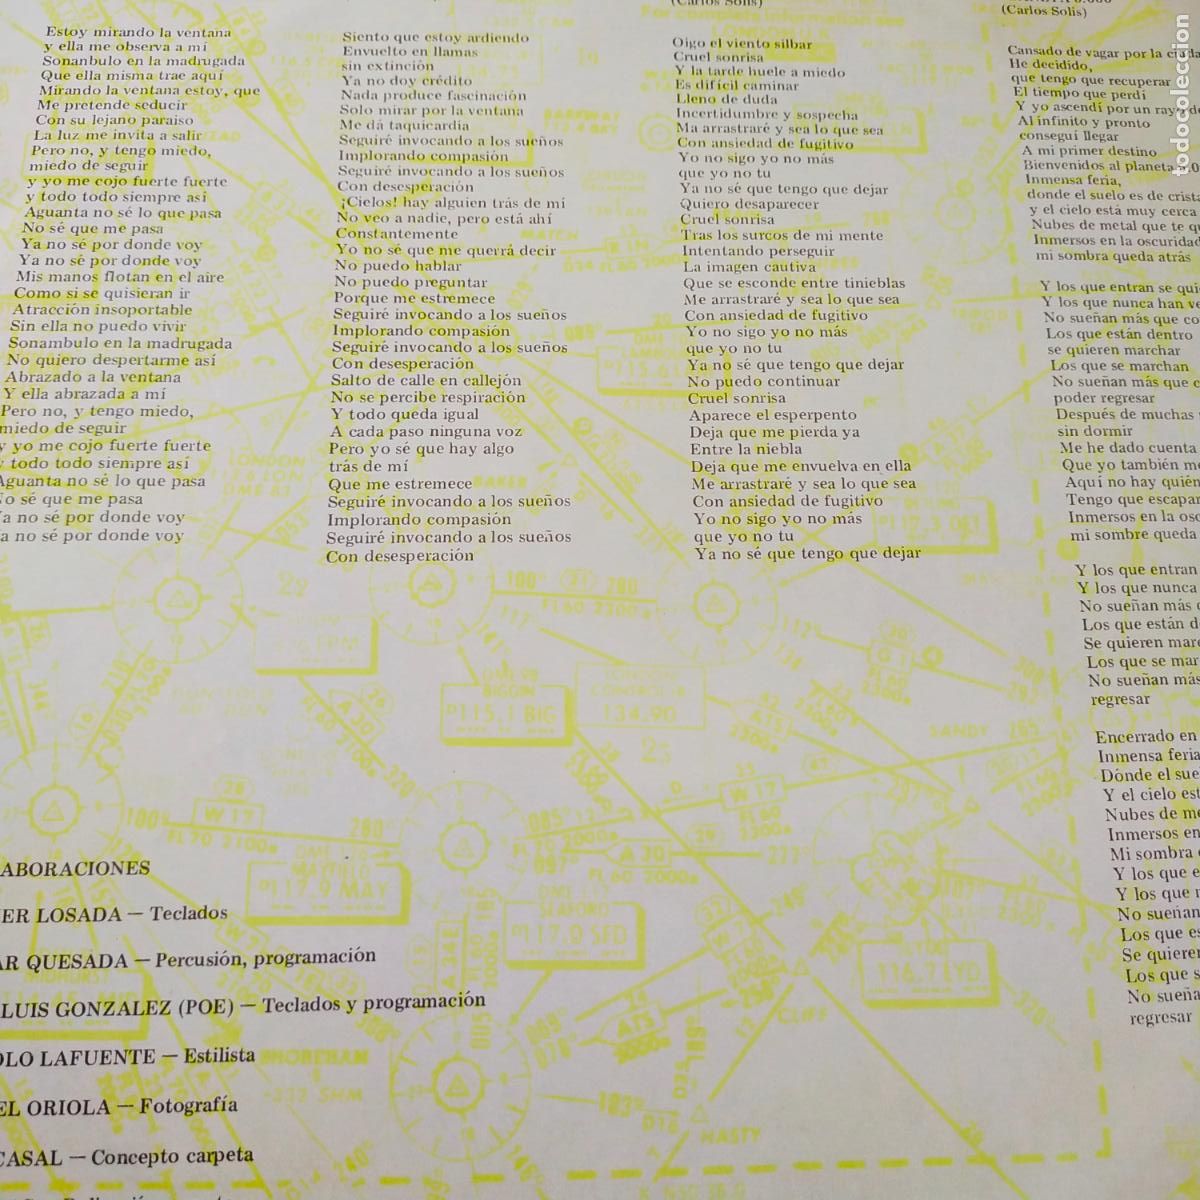 Estoy mirando la ventana
y ella me observa a mí
Sonanbulo en la madrugada
Que ella misma trae aquí
Mirando la ventana estoy, que
Me pretende seducir
Con su lejano paraiso
La luz me invita a salir
Pero no, y tengo miedo,
miedo de seguir
y yo me cojo fuerte fuerte
y todo todo siempre así
Aguanta no sé lo que pasa
No sé que me pasa
Ya no sé por donde voy
Ya no sé por donde voy
Mis manos flotan en el aire
Como si se quisieran ir
Atracción insoportable
Sin ella no puedo vivir
Sonambulo en la madrugada
No quiero despertarme así
Abrazado a la ventana
Y ella abrazada a mí
Pero no, y tengo miedo,
miedo de seguir
y yo me cojo fuerte fuerte
y todo todo siempre así
Aguanta no sé lo que pasa
No sé que me pasa
Ya no sé por donde voy
a no sé por donde voy
Siento que estoy ardiendo
Envuelto en llamas
sin extinción
Ya no doy crédito
Nada produce fascinación
Solo mirar por la ventana
Me dá taquicardia
Seguiré invocando a los sueños
Implorando compasión
Seguiré invocando a los sueños
Con desesperación
¡Cielos! hay alguien trás de mí
No veo a nadie, pero está ahí
Constantemente
Yo no sé que me querrá decir
No puedo hablar
No puedo preguntar
Porque me estremece
Seguiré invocando a los sueños
Implorando compasión
Seguiré invocando a los sueños
Con desesperación
Salto de calle en callejón
No se percibe respiración
Y todo queda igual
A cada paso ninguna voz
Pero yo sé que hay algo
trás de mí
Que me estremece
Seguiré invocando a los sueños
Implorando compasión
Seguiré invocando a los sueños
Con desesperación
(Carlos Solis)
Oigo el viento silbar
Cruel sonrisa
Y la tarde huele a miedo
Es difícil caminar
Lleno de duda
Incertidumbre y sospecha
Ma arrastraré y sea lo que sea
Con ansiedad de fugitivo
Yo no sigo yo no más
que yo no tu
Ya no sé que tengo que dejar
Quiero desaparecer
Cruel sonrisa
Tras los surcos de mi mente
Intentando perseguir
La imagen cautiva
Que se esconde entre tinieblas
Me arrastraré y sea lo que sea
Con ansiedad de fugitivo
Yo no sigo yo no más
que yo no tu
Ya no sé que tengo que dejar
No puedo continuar
Cruel sonrisa
Aparece el esperpento
Deja que me pierda ya
Entre la niebla
Deja que me envuelva en ella
Me arrastraré y sea lo que sea
Con ansiedad de fugitivo
Yo no sigo yo no más
que yo no tu
Ya no sé que tengo que dejar
(Carlos Solis)
Cansado de vagar por la ciuda
He decidido,
que tengo que recuperar
El tiempo que perdí
Y yo ascendí por un rayo de
Al infinito y pronto
conseguí llegar
A mi primer destino
Bienvenidos al planeta
Inmensa feria,
donde el suelo es de crista
y el cielo está muy cerca
Nubes de metal que te qu
Inmersos en la oscuridad
mi sombra queda atrás
Y los que entran se qui
Y los que nunca han ve
No sueñan más que co
Los que están dentro
se quieren marchar
Los que se marchan
No sueñan más que c
poder regresar
Después de muchas
sin dormir
Me he dado cuenta
Que yo también m
Aquí no hay quién
Tengo que escapar
Inmersos en la osc
mi sombre queda
Y los que entran
Y los que nunca
No sueñan más
Los que están d
Se quieren marc
Los que se mar
No sueñan más
regresar
Encerrado en
Inmensa feria
Dónde el sue
Y el cielo est
Nubes de me
Inmersos en
Mi sombra
Y los que e
Y los que n
No sueñan
Los que es
Se quieren
Los que s
No sueña
regresar
ABORACIONES
ER LOSADA — Teclados
AR QUESADA — Percusión, programación
LUIS GONZALEZ (POE) — Teclados y programación
OLO LAFUENTE — Estilista
EL ORIOLA — Fotografía
CASAL — Concepto carpeta
For complete information see
LONDON
BAKER
MATCH
DME 98
BIGGIN
P115.1 BIG
LONDON
CONTROL
134.90
SANDY
W 17
A 30
DME
MAYFIELD
P117.9 MAY
SEAFORD
P117.0 SFD
116.7 LYD
CLIFF
HASTY
SHOREHAM
332 SHM
todocoleccion